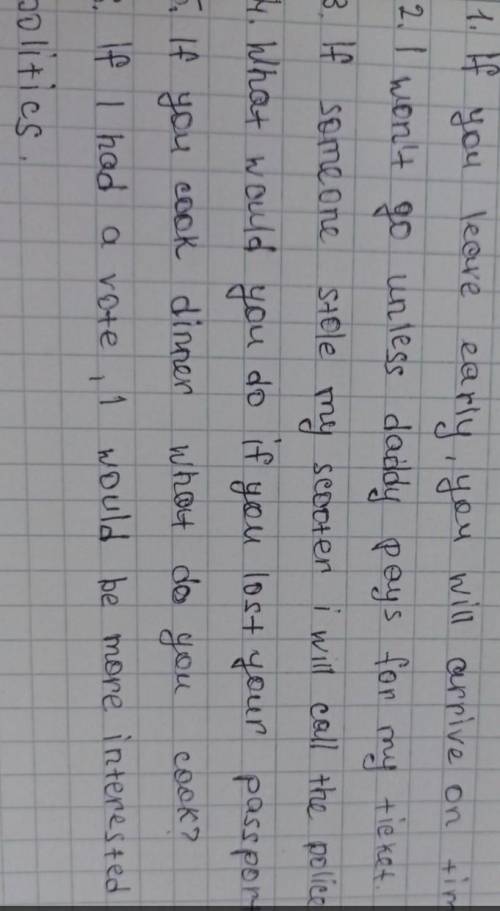 1. If you leave early, you will arrive on tim
2. I won't go unless daddy pays for my ticket.
3. If someone stole my scooter i will call the police
4. What would you do if you lost your passport
5. If you cook dinner what do you cook?
. If I had a vote, I would be more interested
politics.